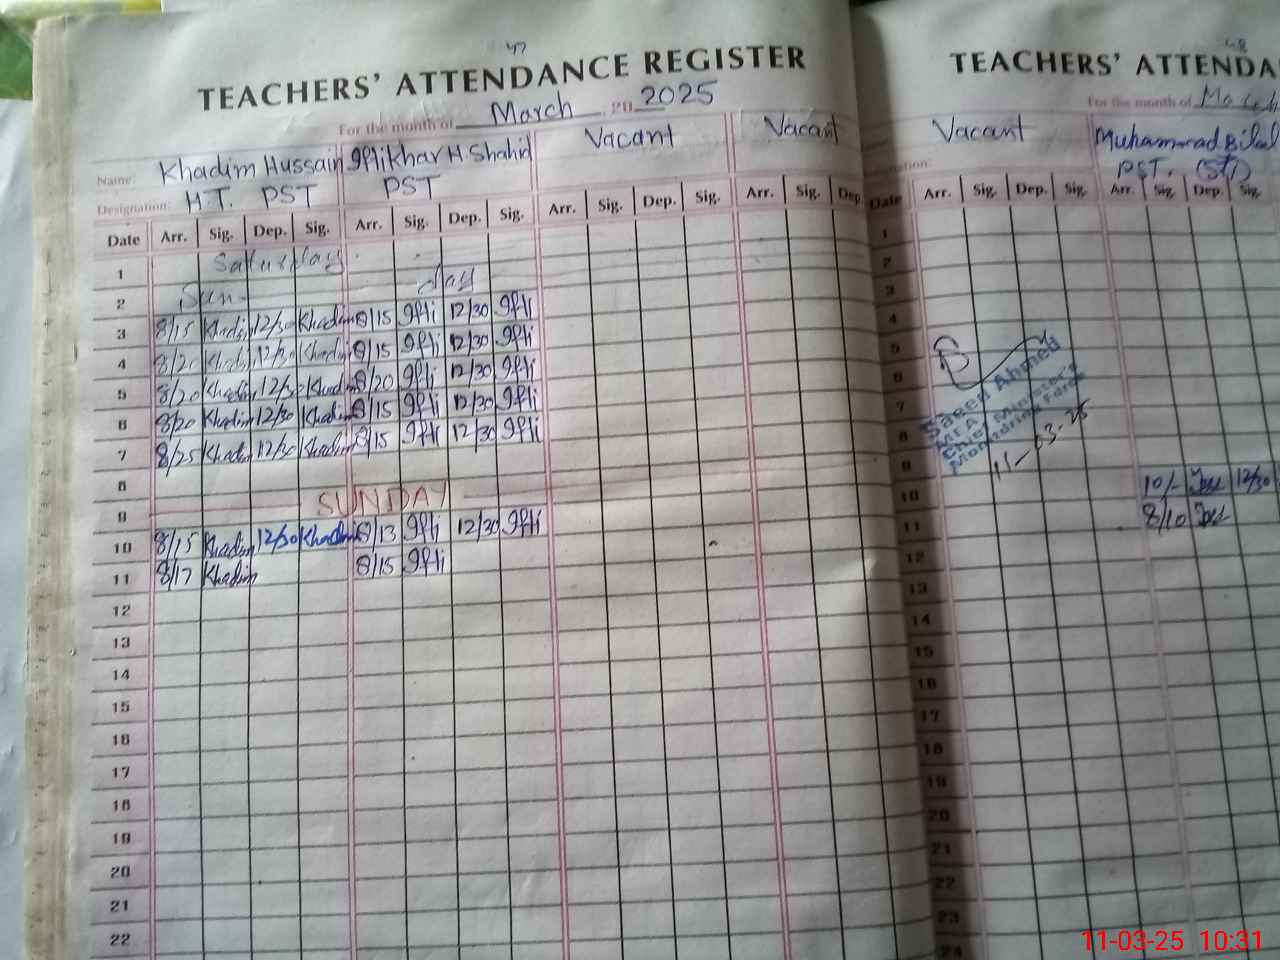 47
TEACHERS' ATTENDANCE REGISTER
For the month of March 20 2025
Name: Khadim Hussain Iftikhar H Shahid Vacant Vacant
Designation: H.T. PST PST
Date Arr. Sig. Dep. Sig. Arr. Sig. Dep. Sig. Arr. Sig. Dep. Sig. Arr. Sig. Dep.
1 Saturday
2 Sun- day
3 8/15 Khadim 12/30 Khadim 8/15 Ifti 12/30 Ifti
4 8/20 Khadim 12/30 Khadim 8/15 Ifti 12/30 Ifti
5 8/20 Khadim 12/30 Khadim 8/20 Ifti 12/30 Ifti
6 8/20 Khadim 12/30 Khadim 8/15 Ifti 12/30 Ifti
7 8/25 Khadim 12/30 Khadim 8/15 Ifti 12/30 Ifti
8
9 SUNDAY
10 8/15 Khadim 12/30 Khadim 8/13 Ifti 12/30 Ifti
11 8/17 Khadim 8/15 Ifti
12
13
14
15
16
17
18
19
20
21
22
48
TEACHERS' ATTENDA
For the month of March
Vacant Muhammad Bilal
nation: PST. (STI)
Date Arr. Sig. Dep. Sig. Arr. Sig. Dep. Sig.
1
2
3
4
5
6
7
8
9
10 10/- 12/30
11 8/10
12
13
14
15
16
17
18
19
20
21
22
23
24
Saeed Ahmed
MEA
Chief Minister's
Monitoring Force
11-03-25
11-03-25 10:31